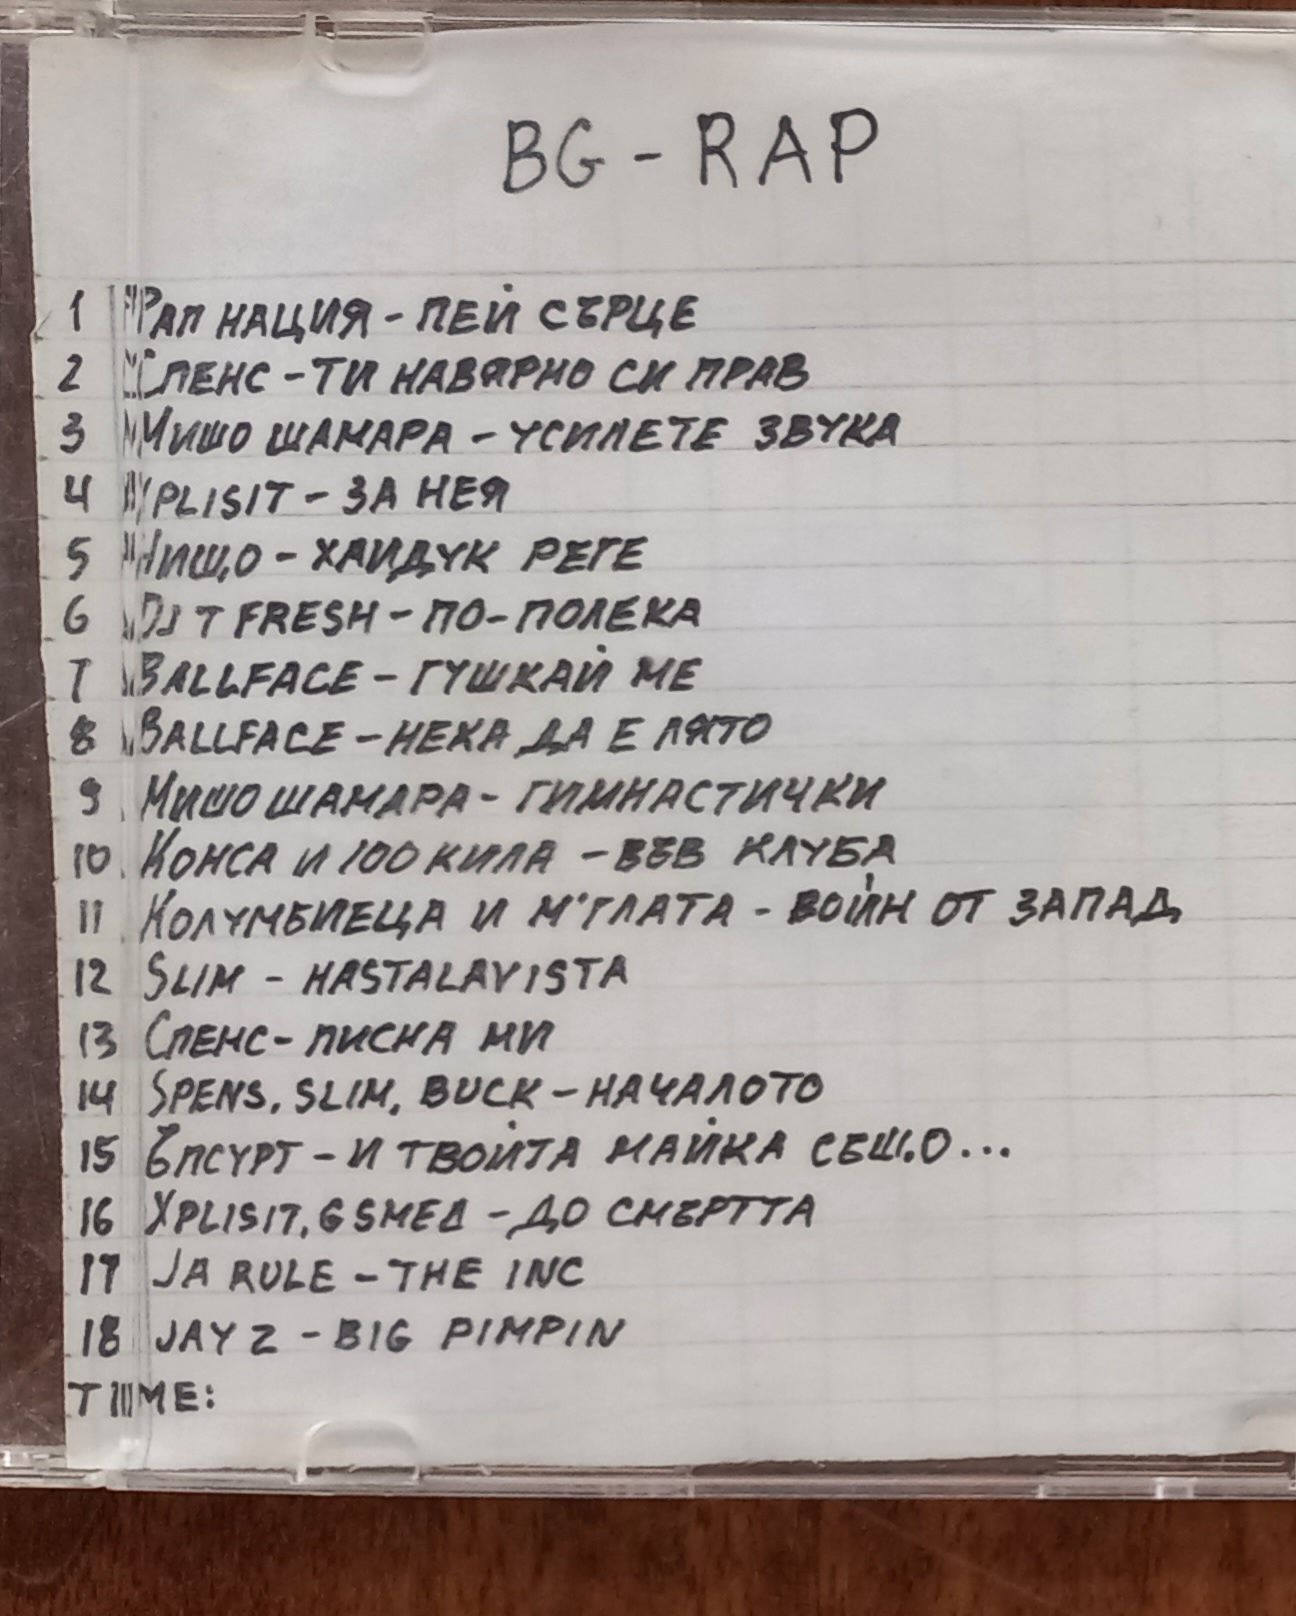 BG - RAP
1 Рап нация - пей сърце
2 Спенс - ти навярно си прав
3 Мишо Шамара - усилете звука
4 Xplisit - за нея
5 Мишо - хайдук реге
6 DJ T Fresh - по-полека
7 Ballface - гушкай ме
8 Ballface - нека да е лято
9 Мишо Шамара - гимнастички
10 Конса и 100 кила - във клуба
11 Колумбиеца и м'глата - войн от запад
12 Slim - hastalavista
13 Спенс - писна ми
14 Spens, Slim, Buck - началото
15 Ъпсурт - и твойта майка също...
16 Xplisit, G Smed - до смъртта
17 Ja Rule - the inc
18 Jay Z - big pimpin
TIME: